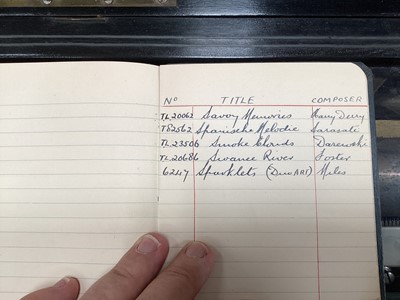 No TITLE COMPOSER
TL20062 Savoy Memories
T82562 Spanische Melodie Sarasate
TL23506 Smoke Clouds Darewski
TL20686 Swanee River Foster
6247 Sparklets (Duo ART) Miles